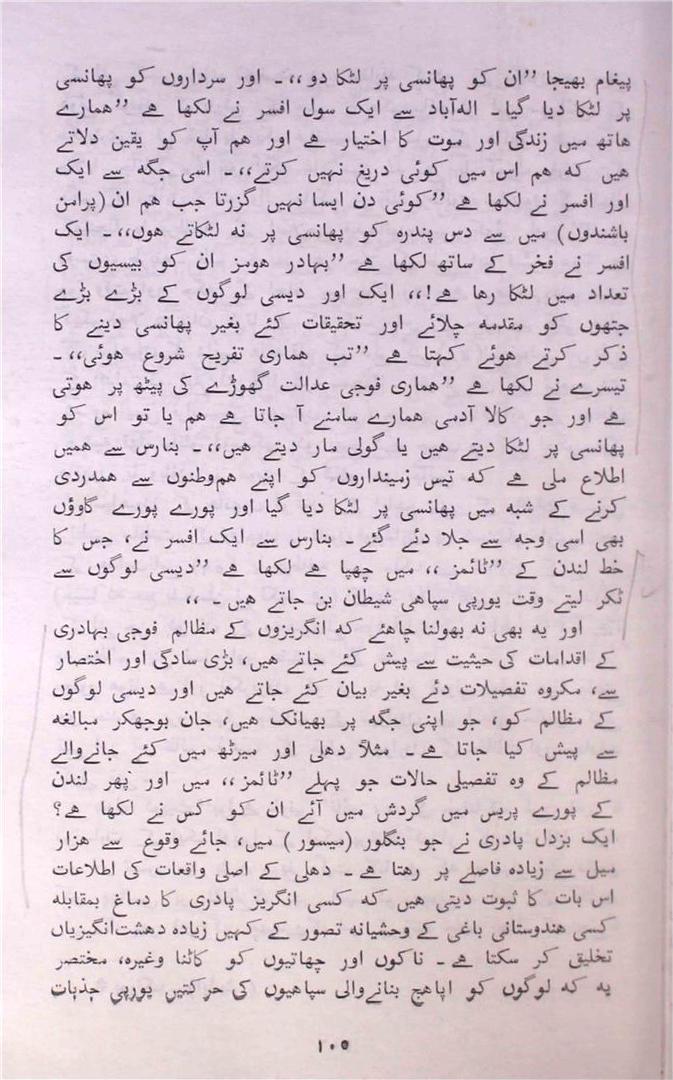 پیغام بھیجا ”ان کو پھانسی پر لٹکا دو،،۔ اور سرداروں کو پھانسی
پر لٹکا دیا گیا۔ الہآباد سے ایک سول افسر نے لکھا ہے ”ہمارے
ہاتھ میں زندگی اور موت کا اختیار ہے اور ہم آپ کو یقین دلاتے
ہیں کہ ہم اس میں کوئی دریغ نہیں کرتے،،۔ اسی جگہ سے ایک
اور افسر نے لکھا ہے ”کوئی دن ایسا نہیں گزرتا جب ہم ان (پرامن
باشندوں) میں سے دس پندرہ کو پھانسی پر نہ لٹکاتے ہوں،،۔ ایک
افسر نے فخر کے ساتھ لکھا ہے ”بہادر ہومز ان کو بیسیوں کی
تعداد میں لٹکا رہا ہے!،، ایک اور دیسی لوگوں کے بڑے بڑے
جتھوں کو مقدمہ چلائے اور تحقیقات کئے بغیر پھانسی دینے کا
ذکر کرتے ہوئے کہتا ہے ”تب ہماری تفریح شروع ہوئی،،۔
تیسرے نے لکھا ہے ”ہماری فوجی عدالت گھوڑے کی پیٹھ پر ہوتی
ہے اور جو کالا آدمی ہمارے سامنے آ جاتا ہے ہم یا تو اس کو
پھانسی پر لٹکا دیتے ہیں یا گولی مار دیتے ہیں،،۔ بنارس سے ہمیں
اطلاع ملی ہے کہ تیس زمینداروں کو اپنے ہموطنوں سے ہمدردی
کرنے کے شبہ میں پھانسی پر لٹکا دیا گیا اور پورے پورے گاوؤں
بھی اسی وجہ سے جلا دئے گئے۔ بنارس سے ایک افسر نے، جس کا
خط لندن کے ”ٹائمز،، میں چھپا ہے لکھا ہے ”دیسی لوگوں سے
ٹکر لیتے وقت یورپی سپاہی شیطان بن جاتے ہیں۔،،
اور یہ بھی نہ بھولنا چاہئے کہ انگریزوں کے مظالم فوجی بہادری
کے اقدامات کی حیثیت سے پیش کئے جاتے ہیں، بڑی سادگی اور اختصار
سے، مکروہ تفصیلات دئے بغیر بیان کئے جاتے ہیں اور دیسی لوگوں
کے مظالم کو، جو اپنی جگہ پر بھیانک ہیں، جان بوجھکر مبالغہ
سے پیش کیا جاتا ہے۔ مثلاً دہلی اور میرٹھ میں کئے جانےوالے
مظالم کے وہ تفصیلی حالات جو پہلے ”ٹائمز،، میں اور پھر لندن
کے پورے پریس میں گردش میں آئے ان کو کس نے لکھا ہے؟
ایک بزدل پادری نے جو بنگلور (میسور) میں، جائے وقوع سے ہزار
میل سے زیادہ فاصلے پر رہتا ہے۔ دہلی کے اصلی واقعات کی اطلاعات
اس بات کا ثبوت دیتی ہیں کہ کسی انگریز پادری کا دماغ بمقابلہ
کسی ہندوستانی باغی کے وحشیانہ تصور کے کہیں زیادہ دہشتانگیزیاں
تخلیق کر سکتا ہے۔ ناکوں اور چھاتیوں کو کاٹنا وغیرہ، مختصر
یہ کہ لوگوں کو اپاہج بنانےوالی سپاہیوں کی حرکتیں یورپی جذبات
۱۰۵